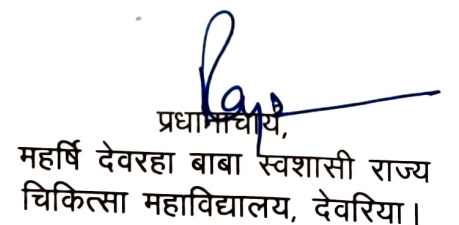 प्रधानाचार्य,
महर्षि देवरहा बाबा स्वशासी राज्य
चिकित्सा महाविद्यालय, देवरिया।